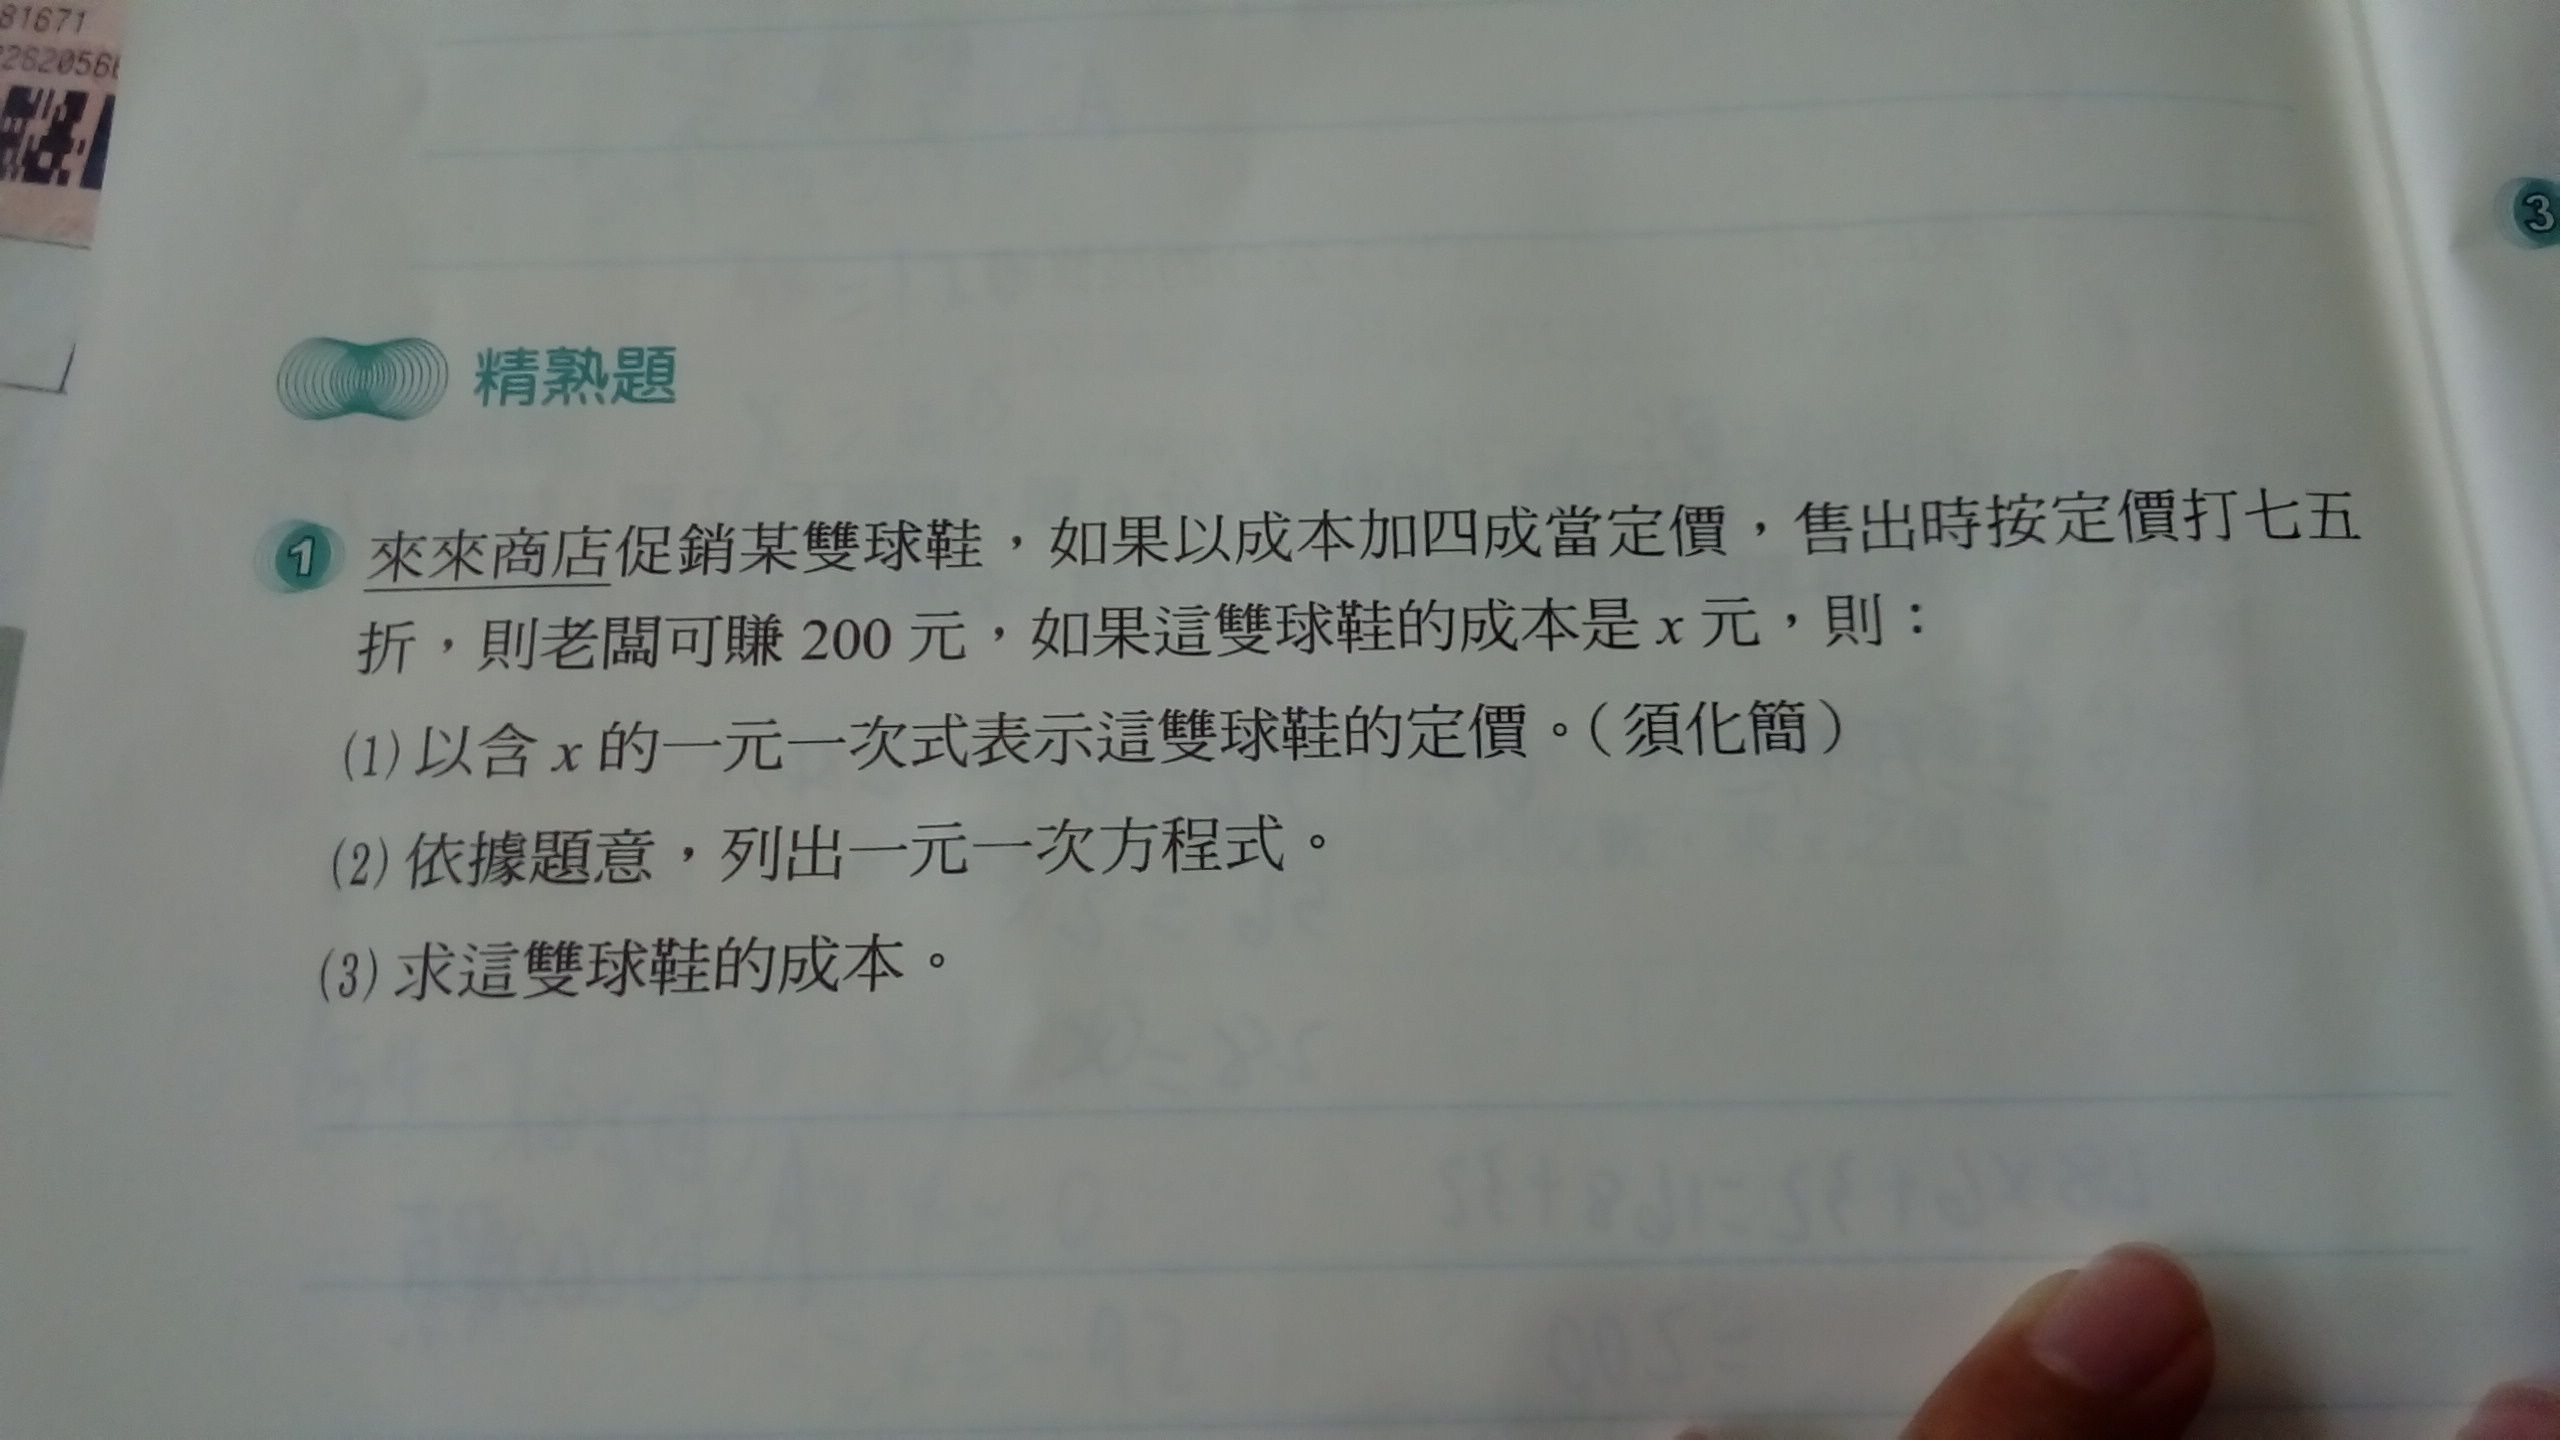 81671
精熟題
3
1 來來商店促銷某雙球鞋，如果以成本加四成當定價，售出時按定價打七五
折，則老闆可賺 200 元，如果這雙球鞋的成本是 x 元，則：
(1) 以含 x 的一元一次式表示這雙球鞋的定價。（須化簡）
(2) 依據題意，列出一元一次方程式。
(3) 求這雙球鞋的成本。